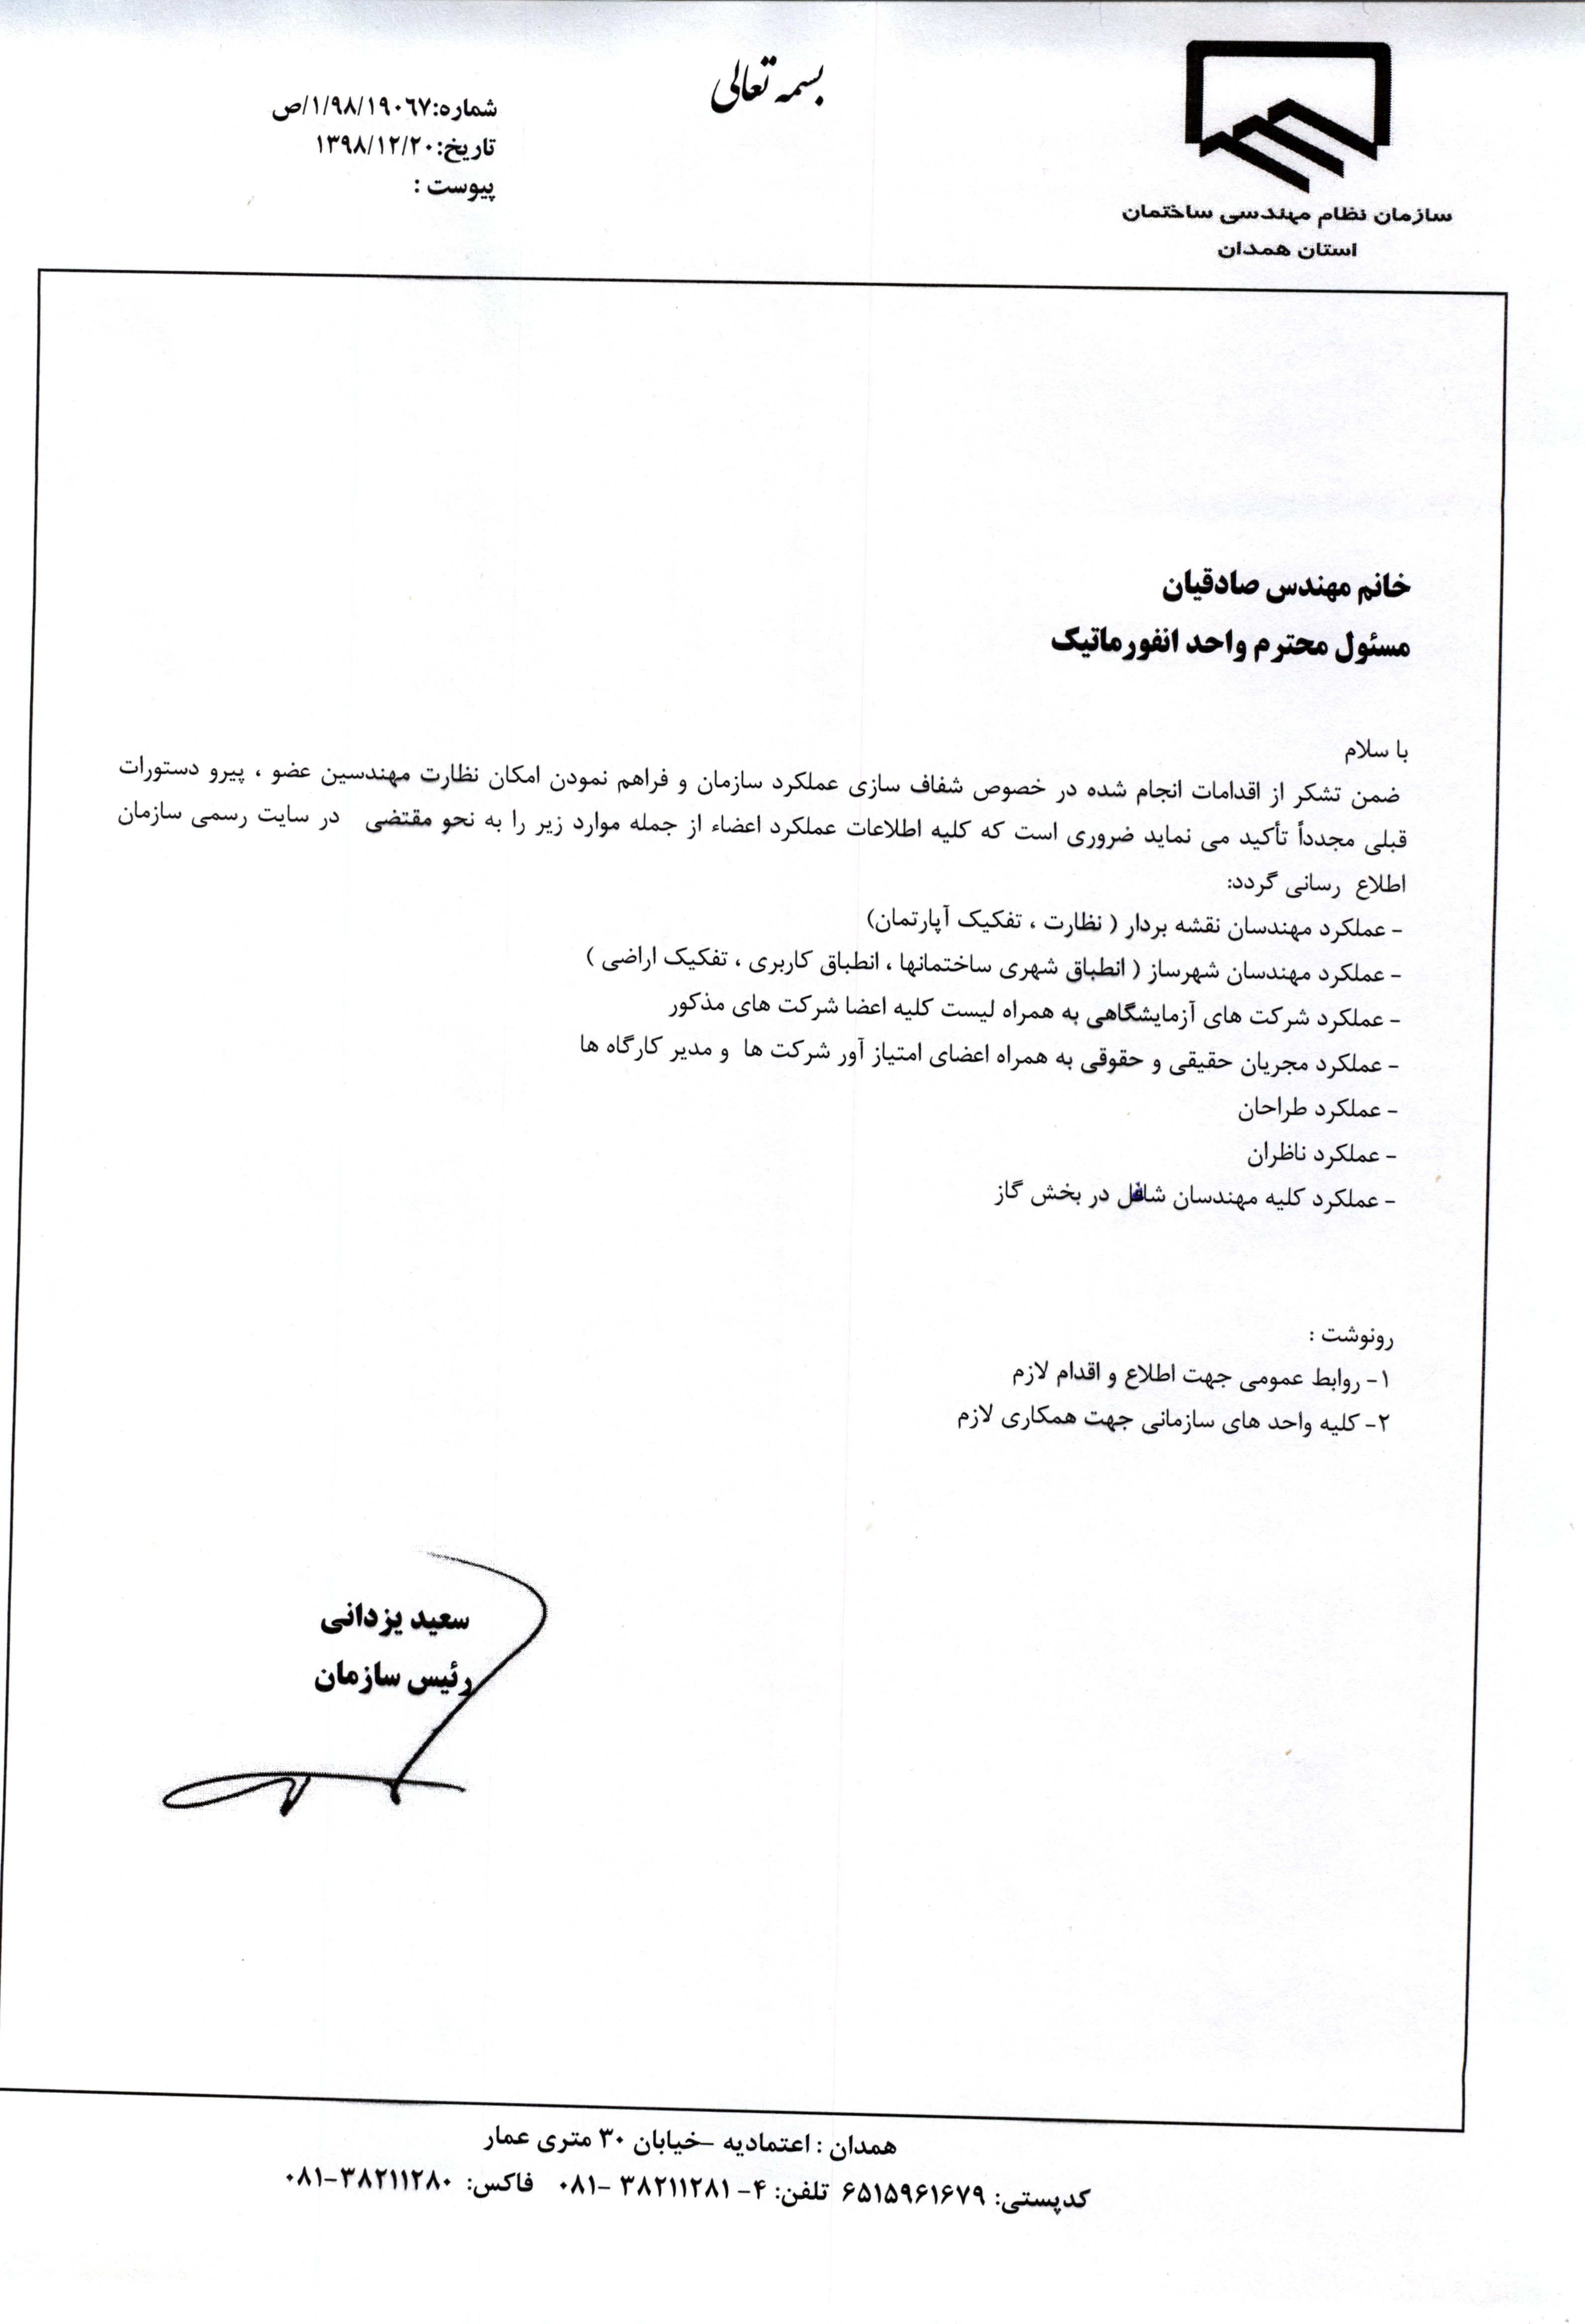 بسمه تعالی
سازمان نظام مهندسی ساختمان
استان همدان
شماره:۱/۹۸/۱۹۰۶۷/ص
تاریخ:۱۳۹۸/۱۲/۲۰
پیوست :
خانم مهندس صادقیان
مسئول محترم واحد انفورماتیک
با سلام
ضمن تشکر از اقدامات انجام شده در خصوص شفاف سازی عملکرد سازمان و فراهم نمودن امکان نظارت مهندسین عضو ، پیرو دستورات
قبلی مجدداً تأکید می نماید ضروری است که کلیه اطلاعات عملکرد اعضاء از جمله موارد زیر را به نحو مقتضی در سایت رسمی سازمان
اطلاع رسانی گردد:
- عملکرد مهندسان نقشه بردار ( نظارت ، تفکیک آپارتمان)
- عملکرد مهندسان شهرساز ( انطباق شهری ساختمانها ، انطباق کاربری ، تفکیک اراضی )
- عملکرد شرکت های آزمایشگاهی به همراه لیست کلیه اعضا شرکت های مذکور
- عملکرد مجریان حقیقی و حقوقی به همراه اعضای امتیاز آور شرکت ها و مدیر کارگاه ها
- عملکرد طراحان
- عملکرد ناظران
- عملکرد کلیه مهندسان شاغل در بخش گاز
رونوشت :
۱- روابط عمومی جهت اطلاع و اقدام لازم
۲- کلیه واحد های سازمانی جهت همکاری لازم
سعید یزدانی
رئیس سازمان
همدان : اعتمادیه -خیابان ۳۰ متری عمار
کدپستی: ۶۵۱۵۹۶۱۶۷۹ تلفن: ۴- ۳۸۲۱۱۲۸۱ -۰۸۱ فاکس: ۳۸۲۱۱۲۸۰-۰۸۱